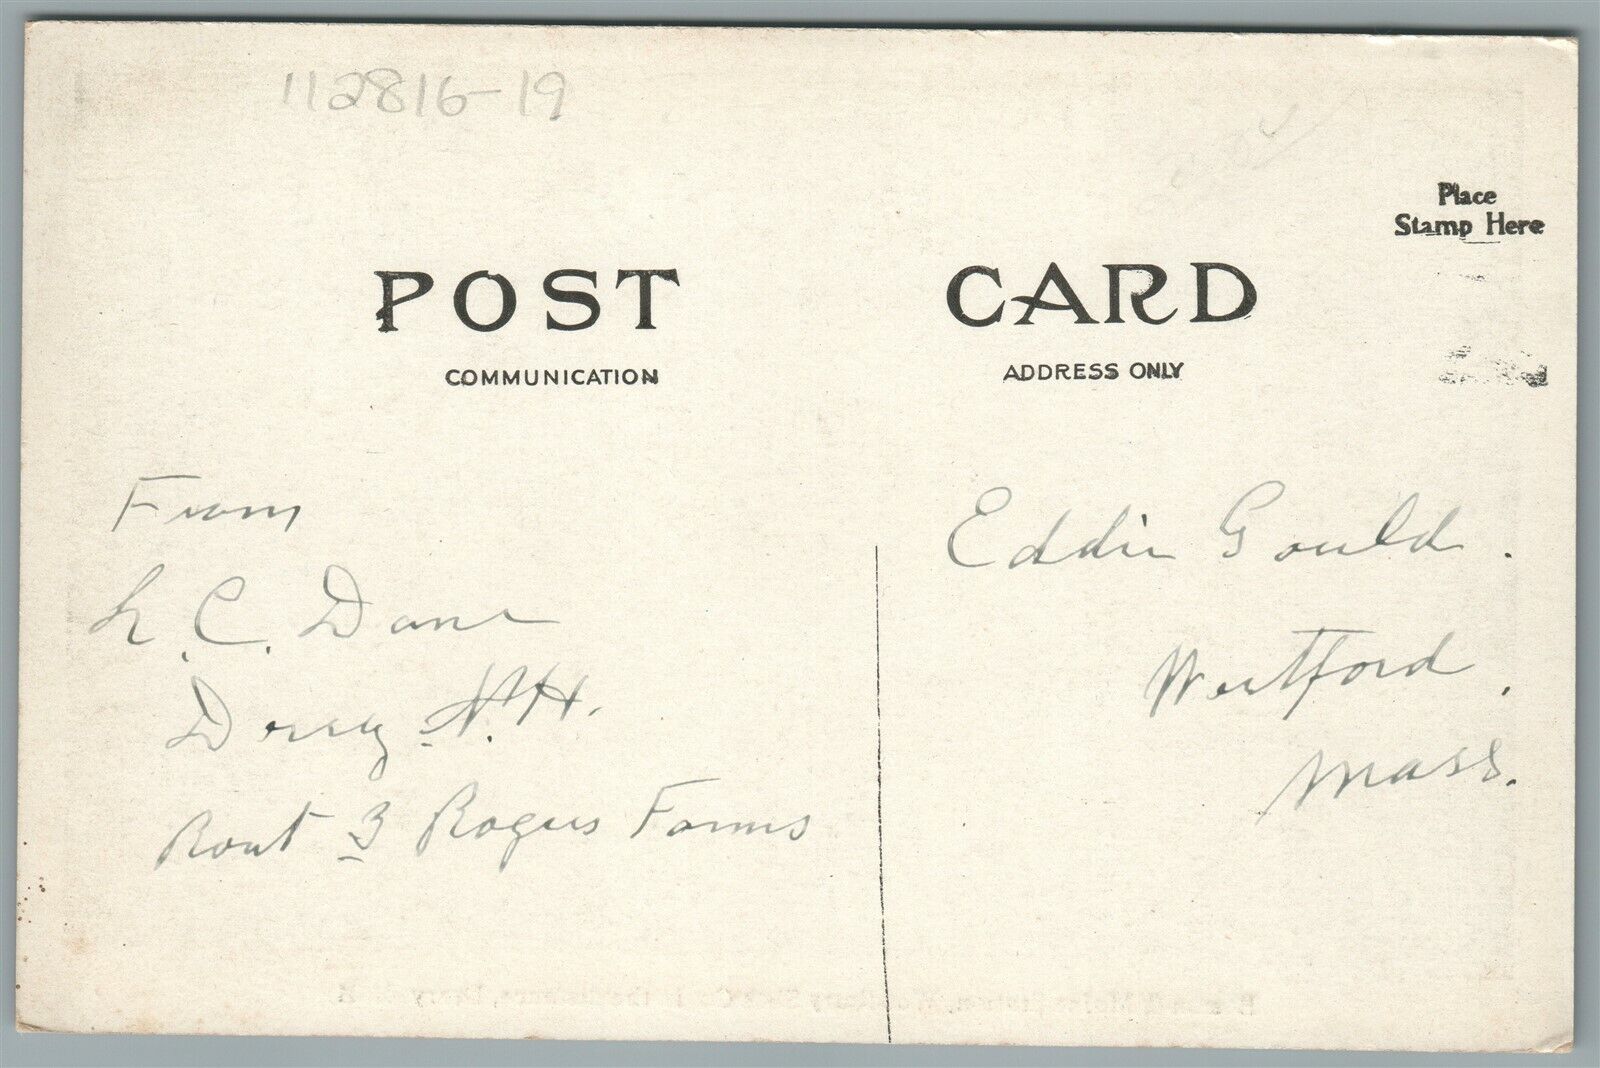 112816-19
Place
Stamp Here
POST CARD
COMMUNICATION
ADDRESS ONLY
From
L. C. Dane
Derry N.H.
Rout 3 Rogers Farms
Eddie Gould.
Westford,
Mass.